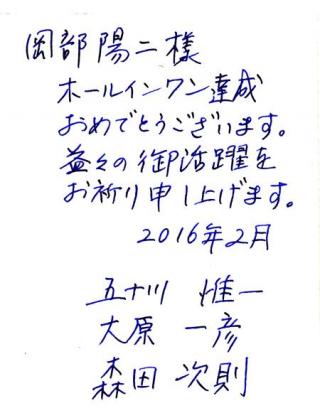 岡部陽二様
ホールインワン達成
おめでとうございます。
益々の御活躍を
お祈り申し上げます。
2016年2月
五十川 惟一
大原 一彦
森田 次則